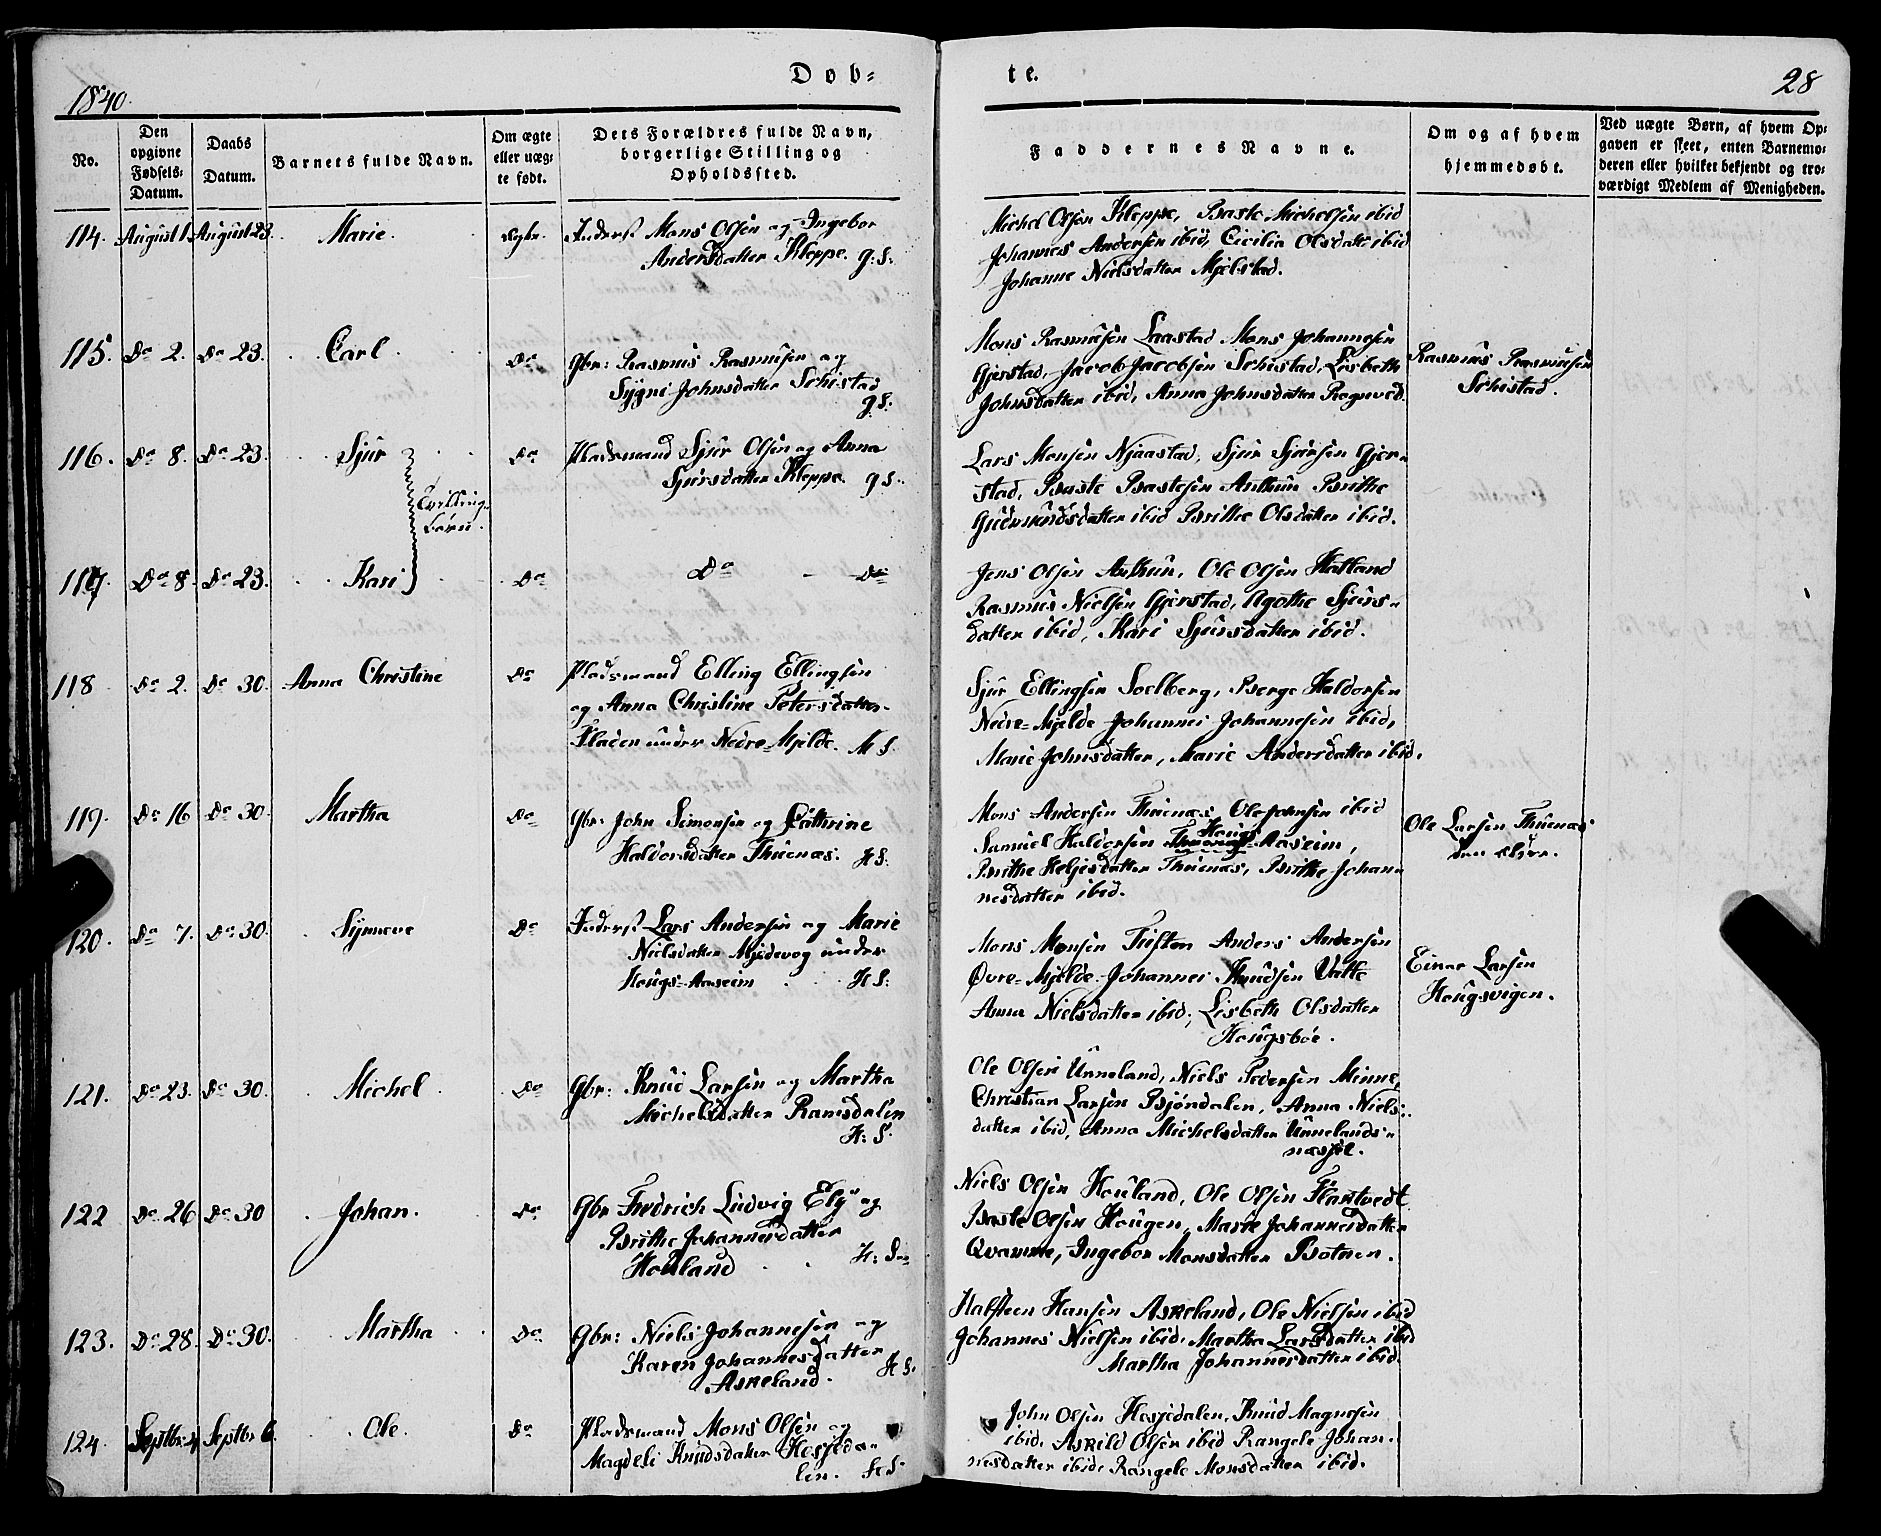 1840.
Døb-
te.
28
No.
Den opgivne Fødsels-Datum.
Daabs Datum.
Barnets fulde Navn.
Om ægte eller uæg-te født.
Dets Forældres fulde Navn, borgerlige Stilling og Opholdssted.
Faddernes Navne.
Om og af hvem hjemmedøbt.
Ved uægte Børn, af hvem Op-gaven er skeet, enten Barnemo-deren eller hvilket bekjendt og tro-værdigt Medlem af Menigheden.
114. August 1. August 23. Marie.
Inderst Mons Olsen og Ingebor
Andersdatter Kleppe. g: S:
Michel Olsen Kleppe, Baste Michelsen ibid
Johannes Andersen ibid, Cicilia Olsdatt ibid
Johanne Nielsdatter Mjelstad.
115. Do 2. Do 23. Carl Do
Gbr: Rasmus Rasmusen og
Sygni Johnsdatter Schistad
g S.
Mons Rasmusen Laastad Mons Johannesen
Gjerstad, Jacob Jacobsen Schistad, Lisbeth
Johnsdatter ibid, Anna Johnsdatter Rognved.
Rasmus Rasmusen
Schistad.
116. Do 8. Do 23. Sjur Do
Tvilling-
børn.
Pladsmand Sjur Olsen og Anna
Sjursdatter Kleppe. g S.
Lars Monsen Njaastad, Sjur Sjursen Gjer-
stad, Baste Bastesen Anthun Brithe
Gudmundsdatter ibid Brithe Olsdatter ibid.
117. Do 8. Do 23. Kari Do
Do Do
Jens Olsen Anthun, Ole Olsen Hatland
Rasmus Nielsen Gjerstad, Agothe Sjurs-
datter ibid, Kari Sjursdatter ibid.
118 Do 2. Do 30. Anna Christine Do
Pladsmand Elling Ellingsen
og Anna Christine Petersdatter
Fladen under Nedre-Mjelde. H S.
Sjur Ellingsen Soelberg, Berge Haldorsen
Nedre-Mjelde Johannes Johannesen ibid,
Marie Johnsdatter, Marie Andersdatter ibid.
119. Do 16 Do 30. Martha Do
Gbr: John Simonsen og Cathrine
Haldorsdatter Thuenæs. H S:
Mons Andersen Thuenæs, Ole Johnsen ibid
Samuel Haldorsen Hougs Aaseim,
Brithe Heljesdatter Thuenæs, Brithe Johan-
nesdatter ibid.
Ole Larsen Thuenæs
den eldre.
120. Do 7. Do 30. Synneve Do
Inderst Lars Andersen og Marie
Nielsdatter Mjeldevog under
Hougs-Aaseim H S:
Mons Monsen Tuften Anders Andersen
Øvre-Mjelde Johannes Knudsen Valle
Anna Nielsdatter ibid, Lisbeth Olsdatter
Hougsbøe.
Einar Larsen
Hougsvigen.
121. Do 23. Do 30. Michel Do
Gbr: Knud Larsen og Martha
Michelsdatter Ramsdalen
H: S.
Ole Olsen Unneland, Niels Pedersen Minne,
Christian Larsen Bjøndalen, Anna Niels-
datter ibid, Anna Michelsdatter Unnelands-
122 Do 26 Do 30 Johan. Do
Gbr Fredrich Ludvig Ely og
Brithe Johannesdatter
Houland H: S
Niels Olsen Houland, Ole Olsen Flaktvedt
Baste Olsen Hougen, Marie Johannesdatter
Qvamme, Ingebor Monsdatter Botnen.
123. Do 28. Do 30. Martha Do
Gbr: Niels Johannesen og
Karen Johannesdatter
Askeland. H S.
Halsteen Hansen Askeland, Ole Nielsen ibid
Johannes Nielsen ibid. Martha Larsdatter ibid
Martha Johannesdatter ibid.
124. Septbr 4 Septbr 6. Ole Do
Pladsmand Mons Olsen og
Magdeli Knudsdatter Hesjeda-
len. H S
John Olsen Hesjedalen, Knud Magnesen
ibid. Askild Olsen ibid Rangele Johan-
nesdatter ibid, Rangele Monsdatter ibid.